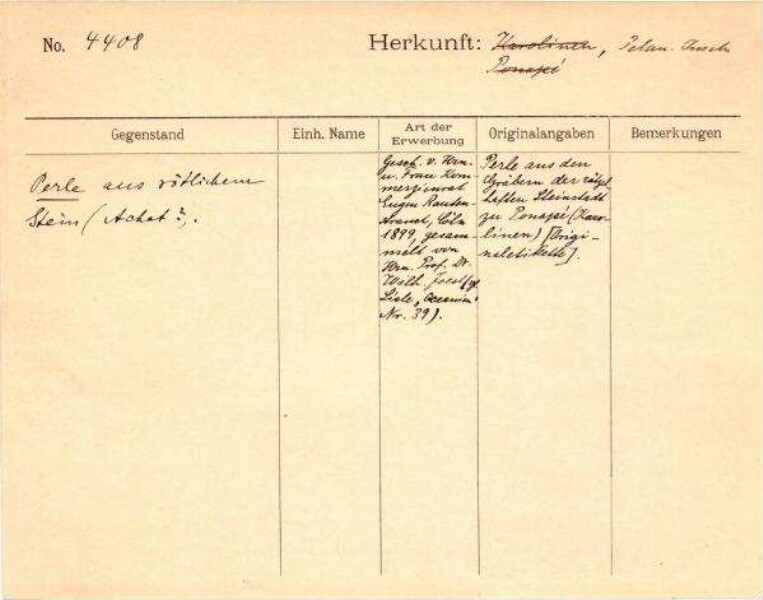 No. 4408
Herkunft: Karolinen, Pelau-Inseln
Ponapé
Gegenstand
Einh. Name
Art der
Erwerbung
Originalangaben
Bemerkungen
Perle aus rötlichem
Stein (Achat?).
Gesch. v. Hrn.
u. Frau Kom-
merzienrat
Eugen Rauten-
strauch, Cöln
1899, gesam-
melt von
Hrn. Prof. Dr.
Wilh. Joest (cf.
Liste „Oceanien"
Nr. 39).
Perle aus den
Gräbern der rätsel
haften Steinstadt
zu Ponapé (Karo-
linen) [Origi-
naletikette].